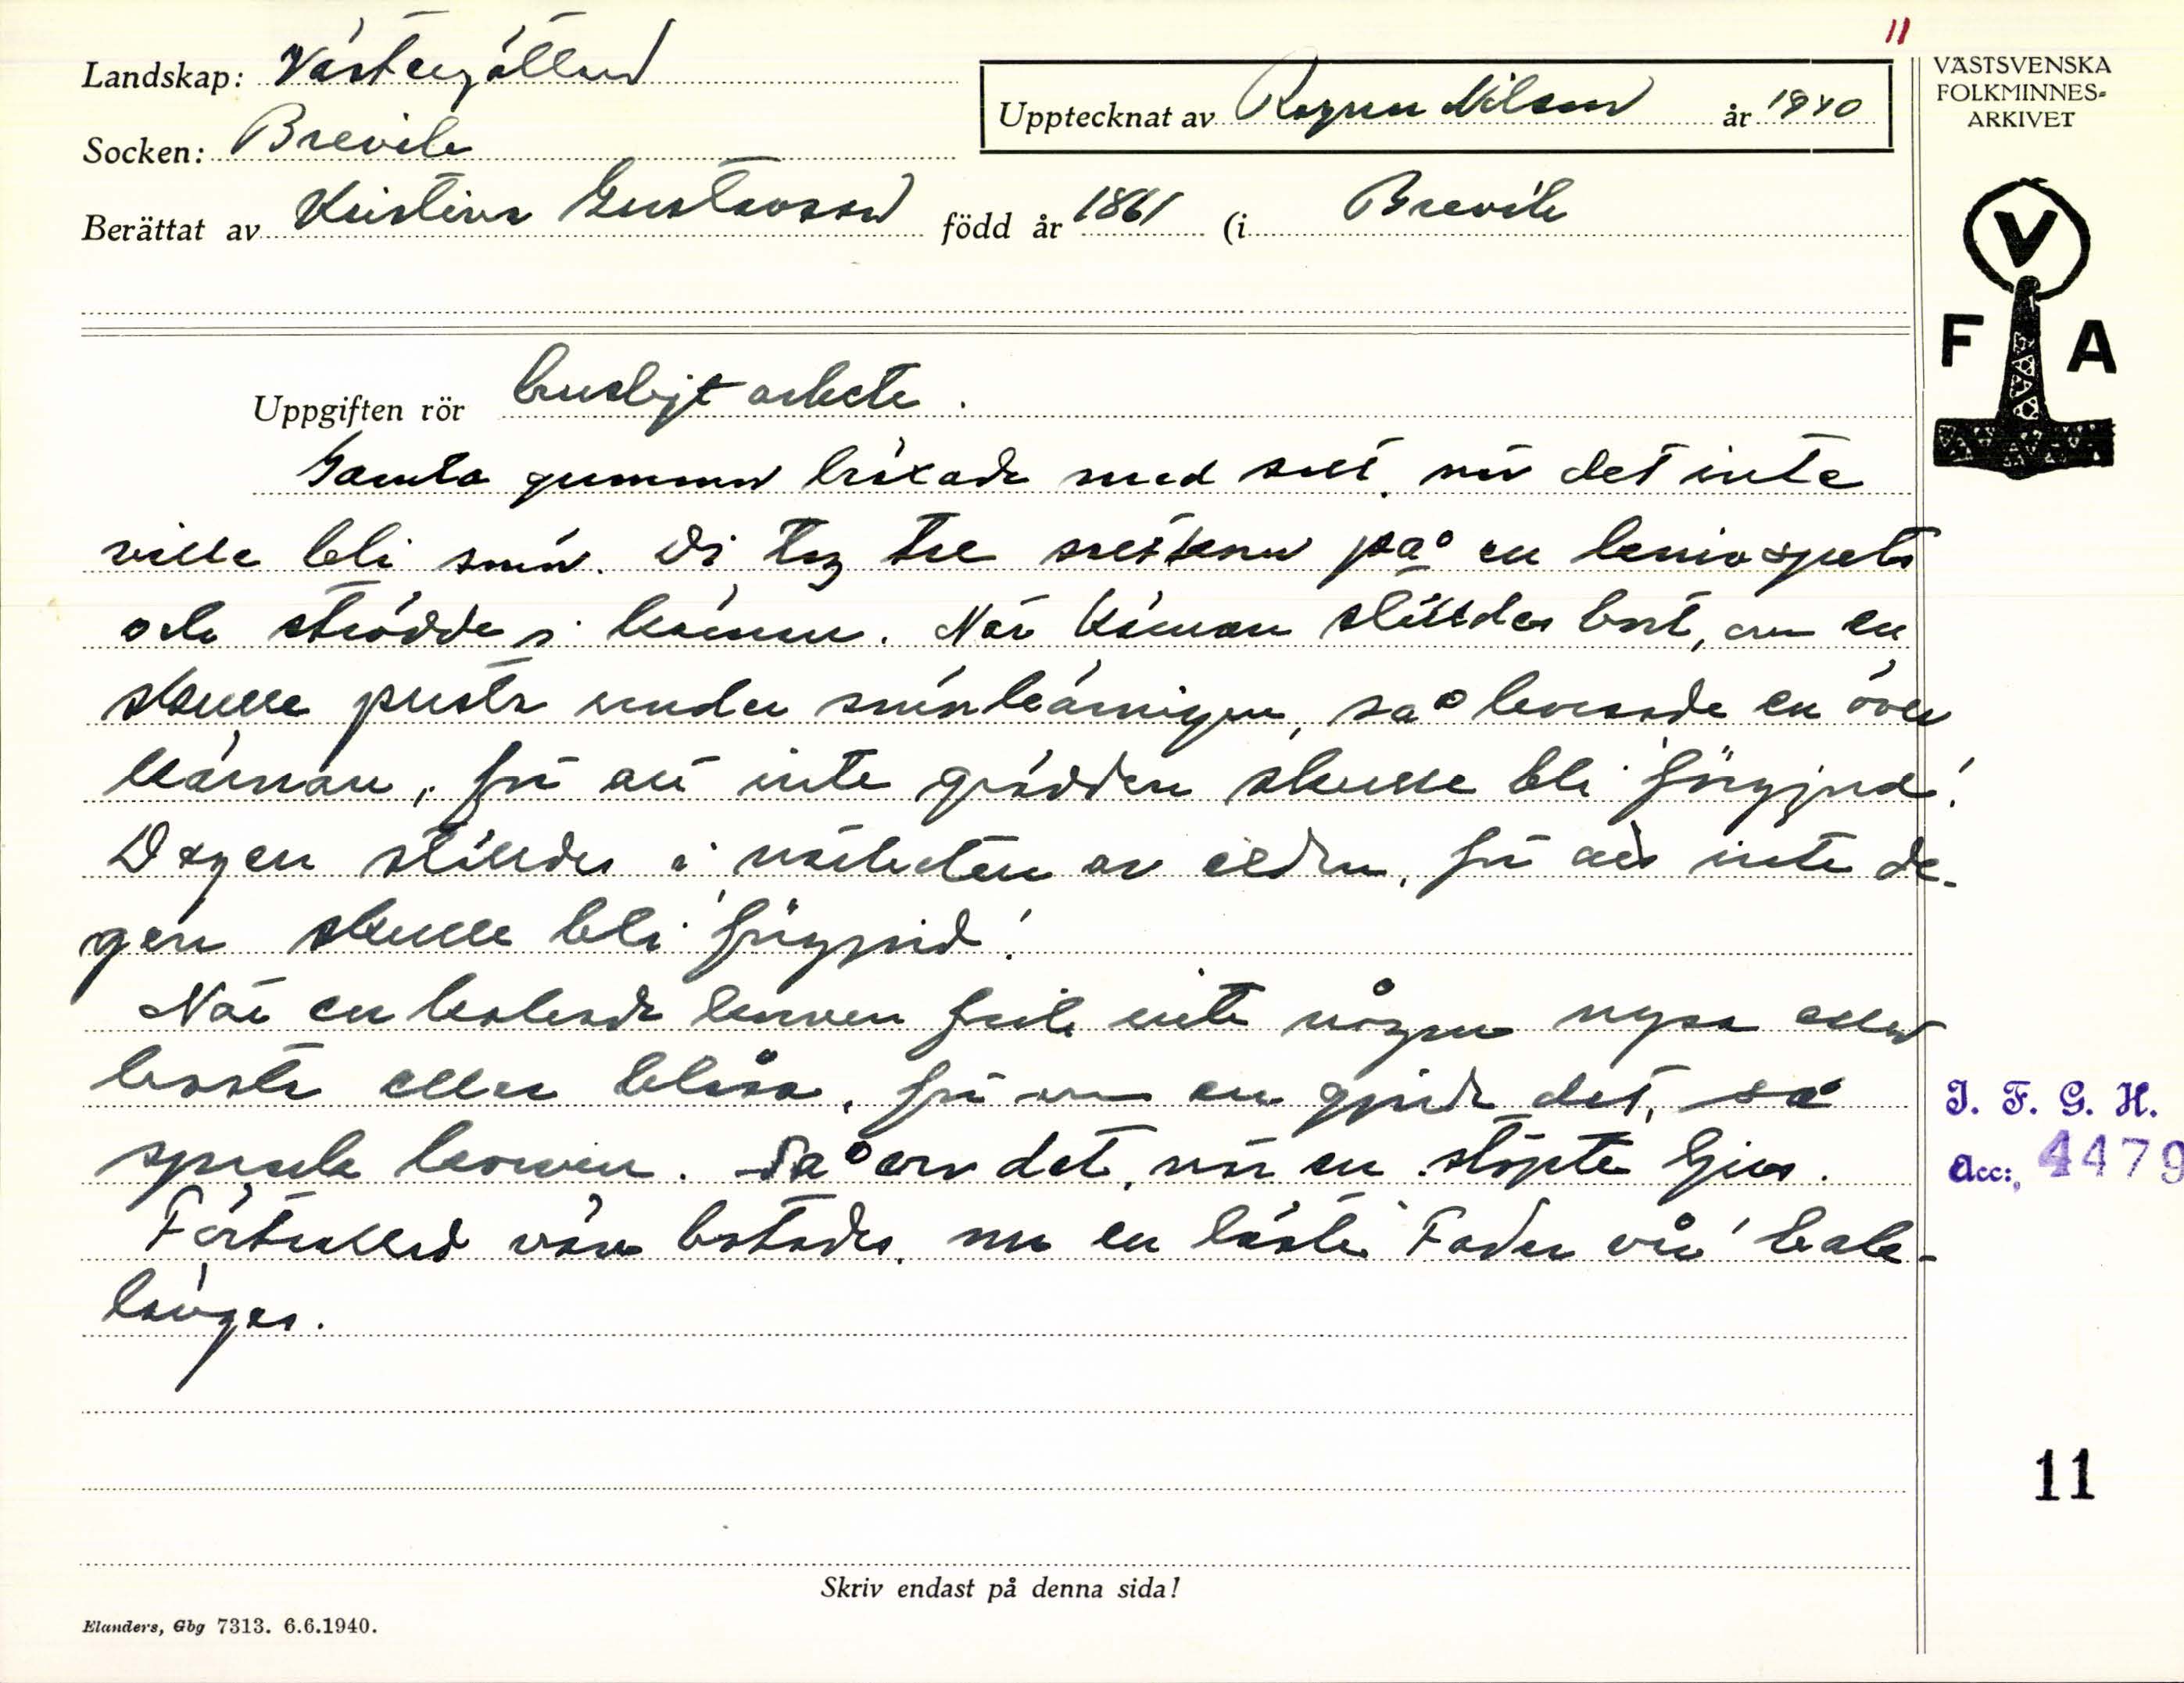 11
Landskap: Västergötland
VÄSTSVENSKA
FOLKMINNES-
ARKIVET
Upptecknat av Ragnar Nilsson år 1940
Socken: Brevik
Berättat av Kristina Gustavsson född år 1861 (i Brevik
V
F A
Uppgiften rör husligt arbete.
Gamla gummor häxade med salt, när det inte
ville bli smör. Di tog tre saltkorn på en knivspets
och strödde i kärnan. När kärnan ställdes bort, om en
skulle pusta under smörkärningen, så korsade en över
kärnan, för att inte grädden skulle bli 'förgjord'.
Degen ställdes i närheten av elden, för att inte de-
gen skulle bli 'förgjord'.
När en kokade korven fick inte någon nysa eller
hosta eller blåsa, för om en gjorde det, så
sprack korven. Så var det, när en stöpte ljus.
Förtrollad vän botades, om en läste 'Fader vår' bak-
länges.
I. F. G. H.
Acc: 4479
11
Skriv endast på denna sida!
Elanders, Gbg 7313. 6.6.1940.